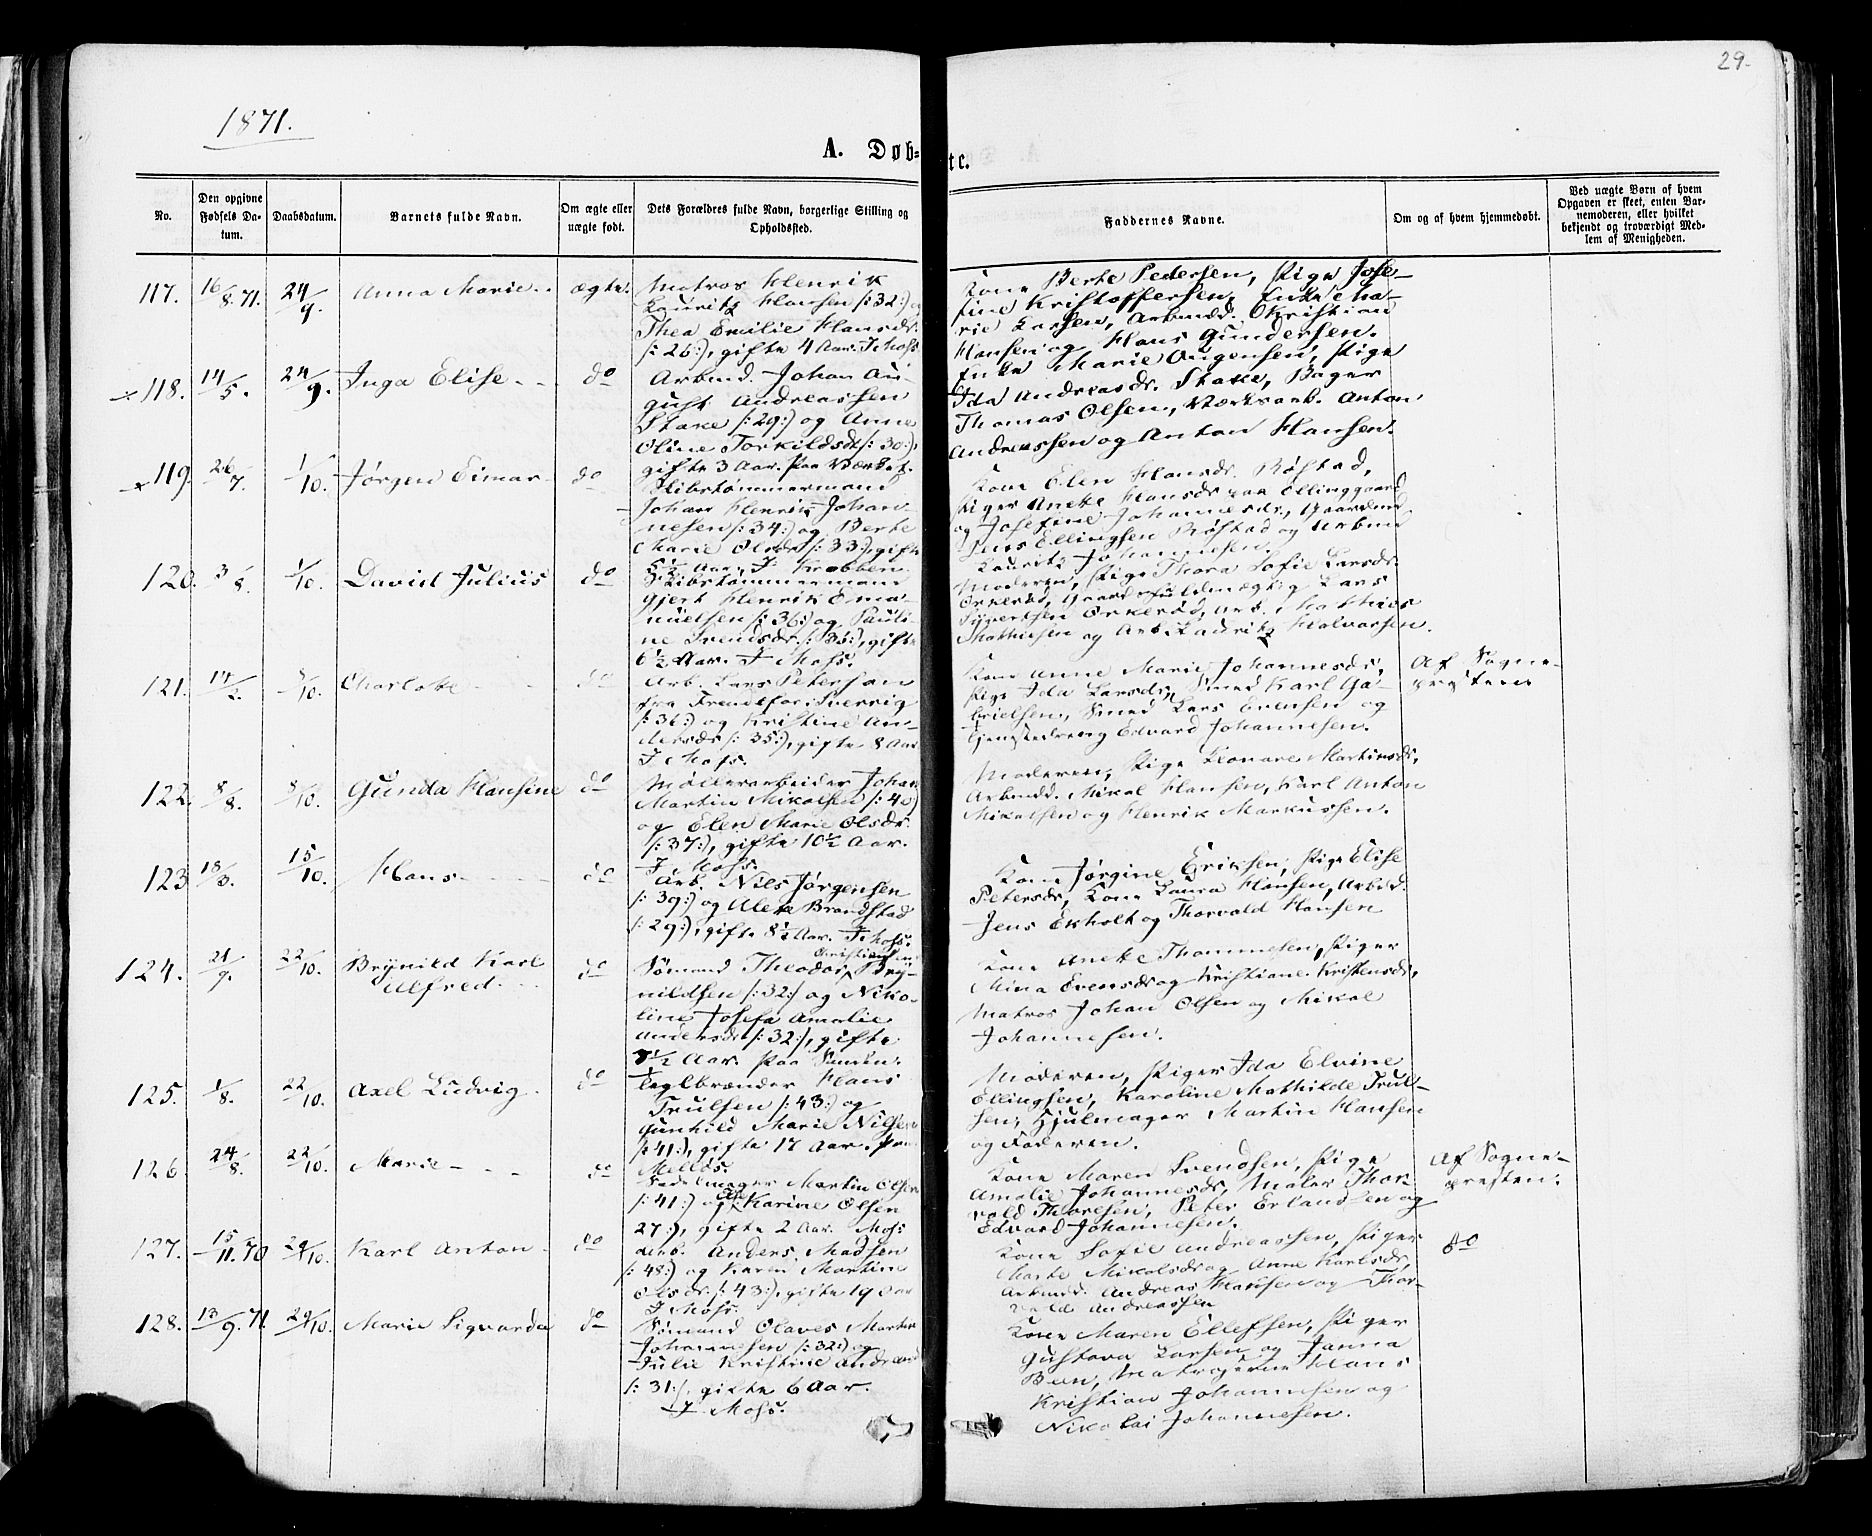 29.
1871.
A. Døb-
te.
No.
Den opgivne Fødsels Da-
tum.
Daabsdatum.
Barnets fulde Navn.
Om ægte eller
uægte født.
Dets Forældres fulde Navn, borgerlige Stilling og
Opholdssted.
Faddernes Navne.
Om og af hvem hjemmedøbt.
Ved uægte Børn af hvem
Opgaven er skeet, enten Bar-
nemoderen, eller hvilket
bekjendt og troværdigt Med-
lem af Menigheden.
117. 16/8 71. 24/9. Anna Marie. ægte.
Matros Henrik
Lauritz Hansen /:32:/ og
Thea Emilie Hansdr.
/:26:/, gifte 4 Aar. I Moss
Kone Berte Pedersen, Pige Jose-
fine Kristoffersen, Enke Ma-
rie Larsen, Arbmdd. Christian
Hansen og Hans Gundersen.
118. 14/5. 24/9. Inga Elise do
Arbmd. Johan Au-
gust Andreassen
Stake /:29:/ og Anne
Oline Torkildsdr /:30:/,
gifte 3 Aar. Paa Værket.
Enke Marie Ougensen, Pige
Ida Andreasdr. Stake, Bager
Thomas Olsen, Værksarb. Anton
Andreassen og Anton Hansen.
119. 26/7. 1/10. Jørgen Eimar do
Skibstømmermand
Johan Henrik Johan-
nesen /:34:/ og Berte
Marie Olsdr /:33:/, gifte
5 1/2 Aar. I Krabben
Kone Elen Hansdr. Røstad,
Piger Aneke Hansdr paa Ellinggaard
og Josefine Johannesdr, Gaardmd
Jens Ellingsen Røstad og Arbmd
Lauritz Johannesen.
120. 3/8. 1/10. David Julius do
Skibstømmermand
Gjert Henrik Ema-
nuelsen /:36:/ og Pauli-
ne Svendsdr. /:36:/, gifte
6 1/2 Aar. I Moss.
Moderen, Pige Thora Sofie Larsdr.
Orkerød, Gaardsfuldmægtig Lars
Syvertsen Orkerød, Arb. Mathias
Mathiesen og Arb. Lauritz Halvorsen.
121. 14/2. 8/10. Charlotte do
Arb. Lars Peterson
fra Sverrig
/:36:/ og Kristine An-
dersdr /:35:/, gifte 8 Aar
I Moss.
Kone Anne Marie Johannesdr,
Pige Ida Larsdr, Smed Karl Ga-
brielsen, Smed Lars Evensen og
Tjenestedreng Edvard Johannesen.
Af Sogne-
presten
122. 8/8. 8/10. Gunda Hansine do
Møllerarbeider Johan
Martin Mikalsen /:40/
og Elen Marie Olsdr.
/:37:/, gifte 10 1/2 Aar.
I Moss.
Moderen, Pige Leonore Martinsdr,
Arbmdd. Mikal Hansen, Karl Anton
Mikalsen og Henrik Markussen.
123 18/3. 15/10. Hans do
Arb. Nils Jørgensen
/:39:/ og Alete Brandstad
/:29:/, gifte 8 1/2 Aar. I Moss.
Kone Jørgine Eriksen, Pige Elise
Petersdr, Kone Laura Hansen, Arbmd.
Jens Ekholt og Thorvald Hansen
124. 21/9. 22/10. Brynild Karl
Alfred do
Sømand Theodor Christiansen Bry-
nildsen /:32:/ og Niko-
line Josefa Amalie
Andersdr /:32:/, gifte
1/2 Aar. Paa
Kone Aneke Thommesen, Piger
Mina Evensdr og Kristiane Kristensdr,
Matros Johan Olsen og Mikal
Johannesen.
125. 1/8. 22/10. Axel Ludvig. do
Teglbrænder Hans
Trulsen /:43:/ og
Gunhild Marie Nilsen
/:41:/, gifte 17 Aar. Paa
Melløs.
Moderen, Piger Ida Elvine
Ellingsen, Karoline Mathilde Trul-
sen, Hjulmager Martin Hansen
og Faderen.
126. 24/8. 22/10. Marie do
Sadelmager Martin Olsen
/:41:/ og Karine Olsen
27:/, gifte 2 Aar. Moss
Kone Maren Svendsen, Pige
Amalie Johannesdr, Maler Thor-
vald Thoresen, Peter Erlandsen og
Edvard Johannesen.
Af Sogne-
presten.
127. 15/11. 70 29/10. Karl Anton do
Arb. Anders Madsen
/:48:/ og Karen Martine
Olsdr /:43:/, gifte 19 Aar
I Moss.
Kone Sofie Andreassen, Piger
Marte Mikalsdr og Anne Karlsdr,
Arbmdd. Andreas Hansen og Thor-
vald Andreassen
do
128. 13/9. 71. 29/10. Marie Sigvarda do
Sømand Olaves Martin
Johannesen /:32:/ og
Julie Kristine Andreas
/:31:/, gifte 6 Aar.
I Moss.
Kone Maren Ellefsen, Piger
Gustava Larsen og Janna
Been, Matroserne Hans
Kristian Johannesen og
Nikolai Johannesen.